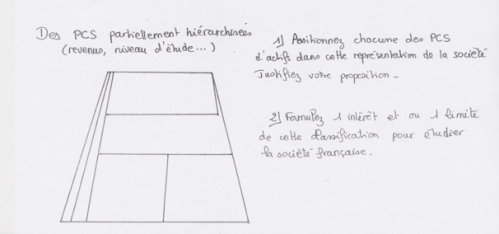 Des PCS partiellement hiérarchisées
(revenus, niveau d'étude...)
1) Positionnez chacune des PCS
d'actifs dans cette représentation de la société
Justifiez votre proposition.
2) Formulez 1 intérêt et ou 1 limite
de cette classification pour étudier
la société française.